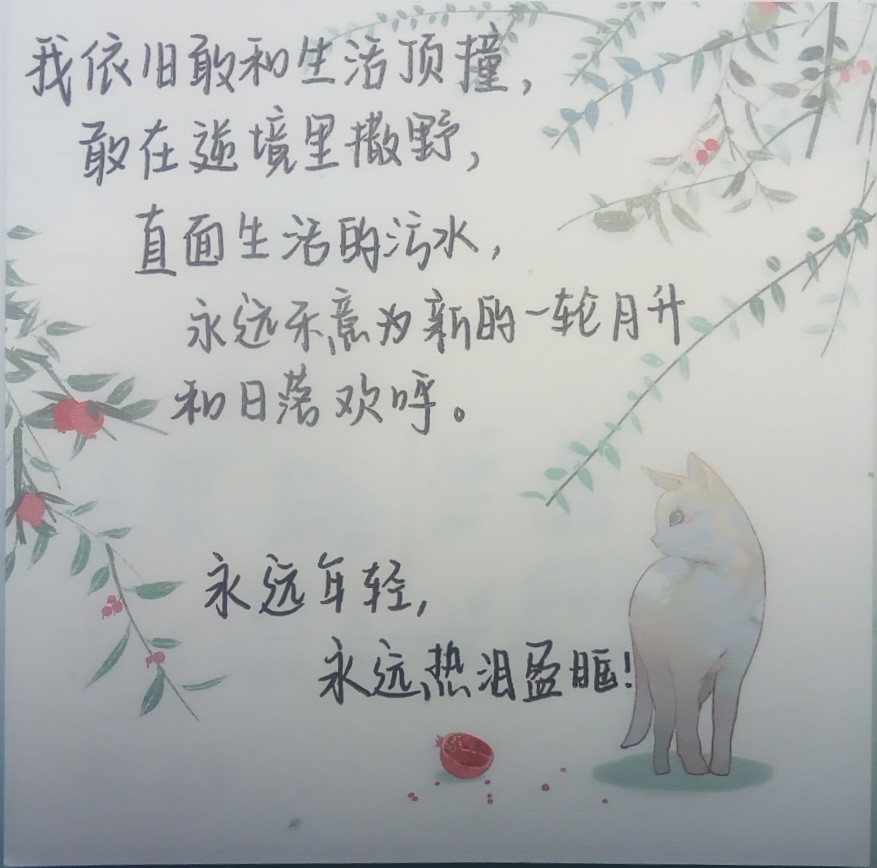 我依旧敢和生活顶撞，
敢在逆境里撒野，
直面生活的污水，
永远乐意为新的一轮月升
和日落欢呼。
永远年轻，
永远热泪盈眶！